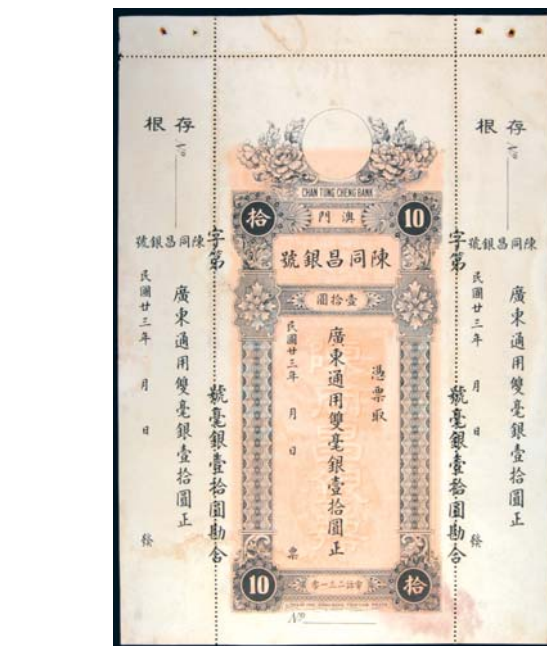 存根
陳同昌銀號
廣東通用雙毫銀壹拾圓正
民國廿三年 月 日
字第
號毫銀壹拾圓勘合
CHAN TUNG CHENG BANK
拾
澳門
10
陳同昌銀號
壹拾圓
憑票取
廣東通用雙毫銀壹拾圓正
民國廿三年 月 日
票
10
拾
Nº
存根
陳同昌銀號
廣東通用雙毫銀壹拾圓正
民國廿三年 月 日
字第
號毫銀壹拾圓勘合